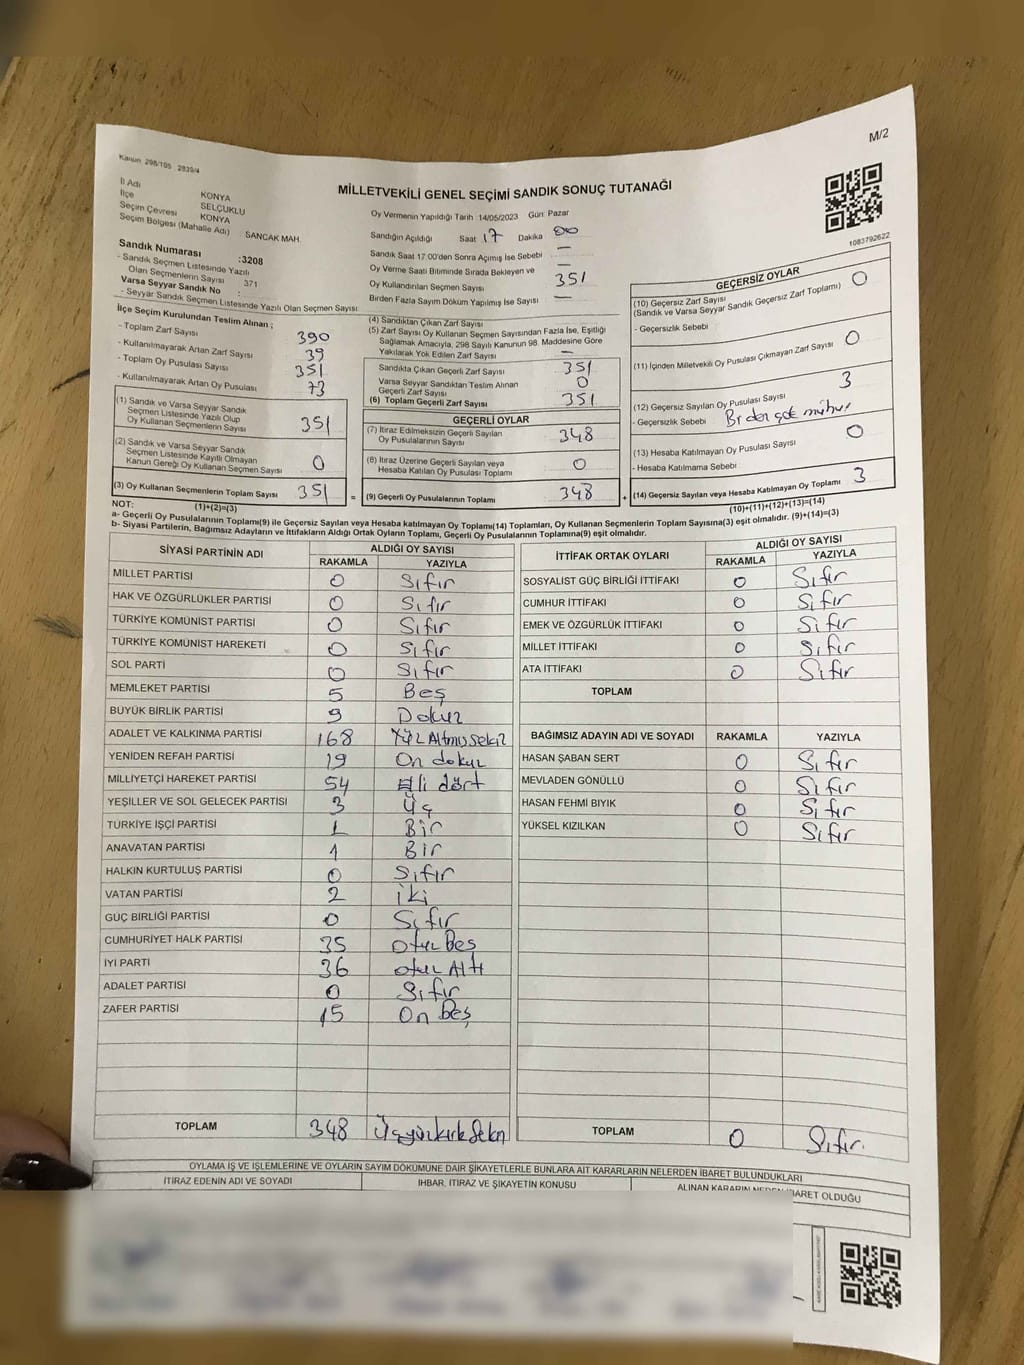 M/2
Kanun 298/105 2839/4
MİLLETVEKİLİ GENEL SEÇİMİ SANDIK SONUÇ TUTANAĞI
1083792622
İl Adı KONYA
İlçe SELÇUKLU
Seçim Çevresi KONYA
Seçim Bölgesi (Mahalle Adı) SANCAK MAH.
Sandık Numarası :3208
- Sandık Seçmen Listesinde Yazılı
Olan Seçmenlerin Sayısı 371
Varsa Seyyar Sandık No :
- Seyyar Sandık Seçmen Listesinde Yazılı Olan Seçmen Sayısı:
İlçe Seçim Kurulundan Teslim Alınan ;
- Toplam Zarf Sayısı 390
- Kullanılmayarak Artan Zarf Sayısı 39
- Toplam Oy Pusulası Sayısı 351
- Kullanılmayarak Artan Oy Pusulası 73
(1) Sandık ve Varsa Seyyar Sandık
Seçmen Listesinde Yazılı Olup
Oy Kullanan Seçmenlerin Sayısı 351
(2) Sandık ve Varsa Seyyar Sandık
Seçmen Listesinde Kayıtlı Olmayan
Kanun Gereği Oy Kullanan Seçmen Sayısı 0
(3) Oy Kullanan Seçmenlerin Toplam Sayısı 351 =
(1)+(2)=(3)
Oy Vermenin Yapıldığı Tarih 14/05/2023 Gün: Pazar
Sandığın Açıldığı Saat 17 Dakika 00
Sandık Saat 17:00'den Sonra Açımış İse Sebebi —
Oy Verme Saati Bitiminde Sırada Bekleyen ve —
Oy Kullandırılan Seçmen Sayısı 351
Birden Fazla Sayım Döküm Yapılmış İse Sayısı —
(4) Sandıktan Çıkan Zarf Sayısı
(5) Zarf Sayısı Oy Kullanan Seçmen Sayısından Fazla İse, Eşitliği
Sağlamak Amacıyla, 298 Sayılı Kanunun 98. Maddesine Göre
Yakılarak Yok Edilen Zarf Sayısı —
Sandıkta Çıkan Geçerli Zarf Sayısı 351
Varsa Seyyar Sandıktan Teslim Alınan
Geçerli Zarf Sayısı 0
(6) Toplam Geçerli Zarf Sayısı 351
GEÇERLİ OYLAR
(7) İtiraz Edilmeksizin Geçerli Sayılan
Oy Pusulalarının Sayısı 348
(8) İtiraz Üzerine Geçerli Sayılan veya
Hesaba Katılan Oy Pusulası Toplamı 0
(9) Geçerli Oy Pusulalarının Toplamı 348 +
GEÇERSİZ OYLAR
(10) Geçersiz Zarf Sayısı 0
(Sandık ve Varsa Seyyar Sandık Geçersiz Zarf Toplamı)
- Geçersizlik Sebebi
(11) İçinden Milletvekili Oy Pusulası Çıkmayan Zarf Sayısı 0
(12) Geçersiz Sayılan Oy Pusulası Sayısı 3
- Geçersizlik Sebebi
(13) Hesaba Katılmayan Oy Pusulası Sayısı 0
- Hesaba Katılmama Sebebi
(14) Geçersiz Sayılan veya Hesaba Katılmayan Oy Toplamı 3
(10)+(11)+(12)+(13)=(14)
NOT:
a- Geçerli Oy Pusulalarının Toplamı(9) ile Geçersiz Sayılan veya Hesaba Katılmayan Oy Toplamı(14) Toplamları, Oy Kullanan Seçmenlerin Toplam Sayısına(3) eşit olmalıdır. (9)+(14)=(3)
b- Siyasi Partilerin, Bağımsız Adayların ve İttifakların Aldığı Ortak Oyların Toplamı, Geçerli Oy Pusulalarının Toplamına(9) eşit olmalıdır.
SİYASİ PARTİNİN ADI ALDIĞI OY SAYISI
RAKAMLA YAZIYLA
MİLLET PARTİSİ 0 Sıfır
HAK VE ÖZGÜRLÜKLER PARTİSİ 0 Sıfır
TÜRKİYE KOMÜNİST PARTİSİ 0 Sıfır
TÜRKİYE KOMÜNİST HAREKETİ 0 Sıfır
SOL PARTİ 0 Sıfır
MEMLEKET PARTİSİ 5 Beş
BÜYÜK BİRLİK PARTİSİ 9 Dokuz
ADALET VE KALKINMA PARTİSİ 168 Yüz Altmış sekiz
YENİDEN REFAH PARTİSİ 19 On dokuz
MİLLİYETÇİ HAREKET PARTİSİ 54 Elli dört
YEŞİLLER VE SOL GELECEK PARTİSİ 3 Üç
TÜRKİYE İŞÇİ PARTİSİ 1 Bir
ANAVATAN PARTİSİ 1 Bir
HALKIN KURTULUŞ PARTİSİ 0 Sıfır
VATAN PARTİSİ 2 iki
GÜÇ BİRLİĞİ PARTİSİ 0 Sıfır
CUMHURİYET HALK PARTİSİ 35 otuz Beş
İYİ PARTİ 36 otuz Altı
ADALET PARTİSİ 0 Sıfır
ZAFER PARTİSİ 15 On Beş
TOPLAM 348 Üçyüzkırk Sekiz
İTTİFAK ORTAK OYLARI ALDIĞI OY SAYISI
RAKAMLA YAZIYLA
SOSYALİST GÜÇ BİRLİĞİ İTTİFAKI 0 Sıfır
CUMHUR İTTİFAKI 0 Sıfır
EMEK VE ÖZGÜRLÜK İTTİFAKI 0 Sıfır
MİLLET İTTİFAKI 0 Sıfır
ATA İTTİFAKI 0 Sıfır
TOPLAM
BAĞIMSIZ ADAYIN ADI VE SOYADI RAKAMLA YAZIYLA
HASAN ŞABAN SERT 0 Sıfır
MEVLADEN GÖNÜLLÜ 0 Sıfır
HASAN FEHMİ BIYIK 0 Sıfır
YÜKSEL KIZILKAN 0 Sıfır
TOPLAM 0 Sıfır.
OYLAMA İŞ VE İŞLEMLERİNE VE OYLARIN SAYIM DÖKÜMÜNE DAİR ŞİKAYETLERLE BUNLARA AİT KARARLARIN NELERDEN İBARET BULUNDUKLARI
İTİRAZ EDENİN ADI VE SOYADI İHBAR, İTİRAZ VE ŞİKAYETİN KONUSU ALINAN KARARIN NEDEN İBARET OLDUĞU